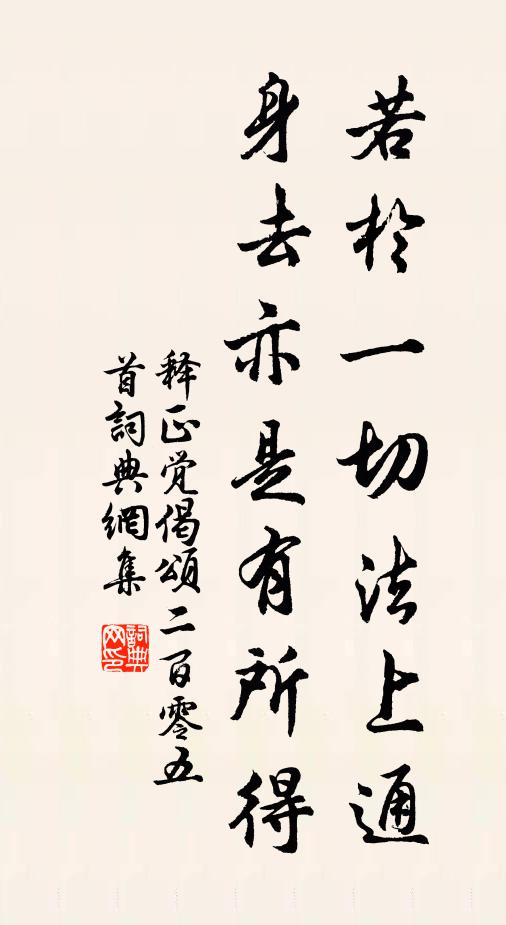 若於一切法上通
身去亦是有所得
释正觉偈頌二百零五
首詞典網集
詞典
网印